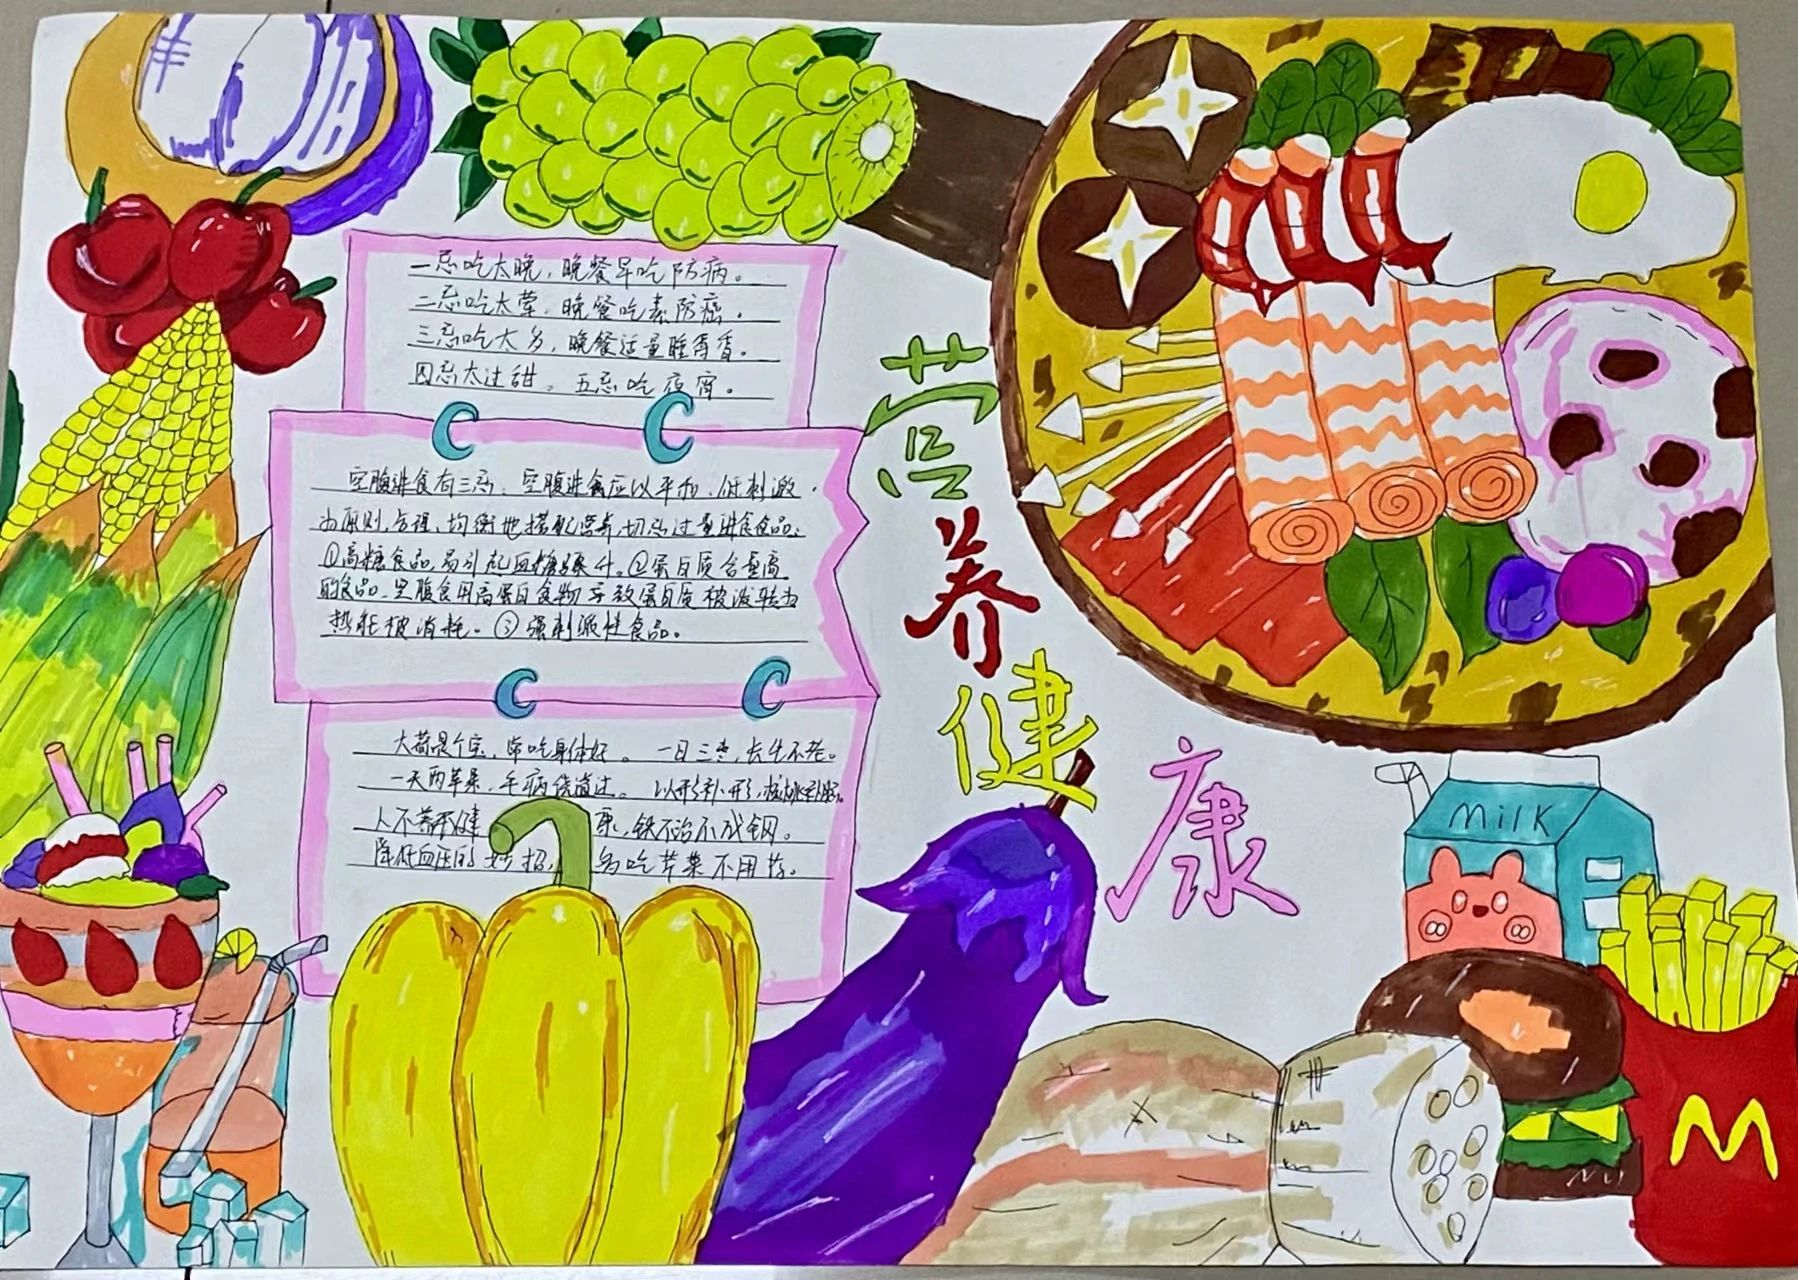 一忌吃太晚，晚餐早吃防病。
二忌吃太荤，晚餐吃素防癌。
三忌吃太多，晚餐适量睡得香。
四忌太过甜。五忌吃夜宵。
空腹进食有三忌：空腹进食应以平和、低刺激
为原则，合理、均衡地搭配营养，切忌过量进食食品。
①高糖食品，易引起血糖骤升。②蛋白质含量高
的食品，空腹食用高蛋白食物 导致蛋白质被波转为
热能被消耗。③强刺激性食品。
大蒜是个宝，常吃身体好。一日三枣，长生不老。
一天两苹果，毛病绕道过。以形补形，核桃补脑。
人不养不健康，铁不冶不成钢。
降低血压的妙招，多吃芹菜不用药。
营养健康
MilK
M